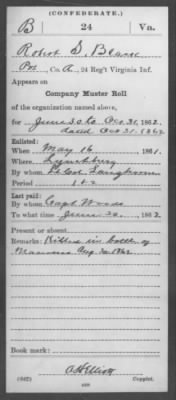 (CONFEDERATE.)
B 24 Va.
Robert S. Beane
Pvt, Co. A, 24 Reg't Virginia Inf.
Appears on
Company Muster Roll
of the organization named above,
for June 30 to Oct 31, 1862.
dated Oct 31, 1862
Enlisted:
When May 16, 1861.
Where Lynchburg
By whom Lt Col Langhorne
Period 1 yr
Last paid:
By whom Capt Woods
To what time June 30, 1862.
Present or absent
Remarks: Killed in battle of
Manassas Aug 30 1862
Book mark:
(642) Copyist.